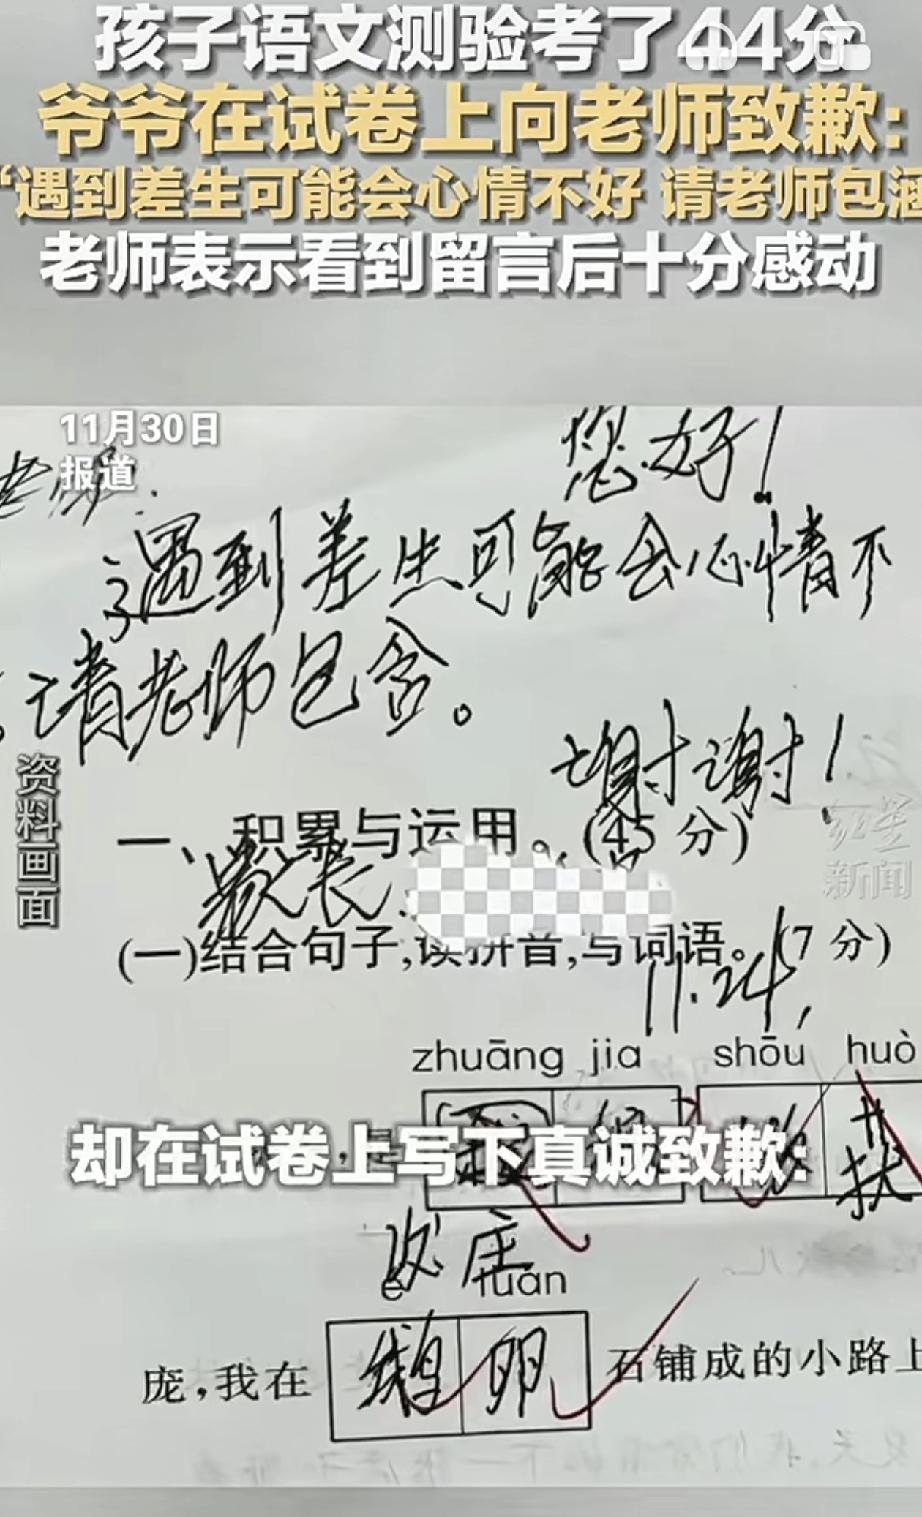 孩子语文测验考了44分
爷爷在试卷上向老师致歉：
“遇到差生可能会心情不好 请老师包涵
老师表示看到留言后十分感动
11月30日
报道
您好！
遇到差生可能会心情不
请老师包含。
谢谢！
资料画面
一、积累与运用。(45分)
红星
新闻
家长
(一)结合句子,读拼音,写词语。(7分)
11.24
zhuāng jia shōu huò
却在试卷上写下真诚致歉：
é luǎn
庞,我在 鹅 卵 石铺成的小路上